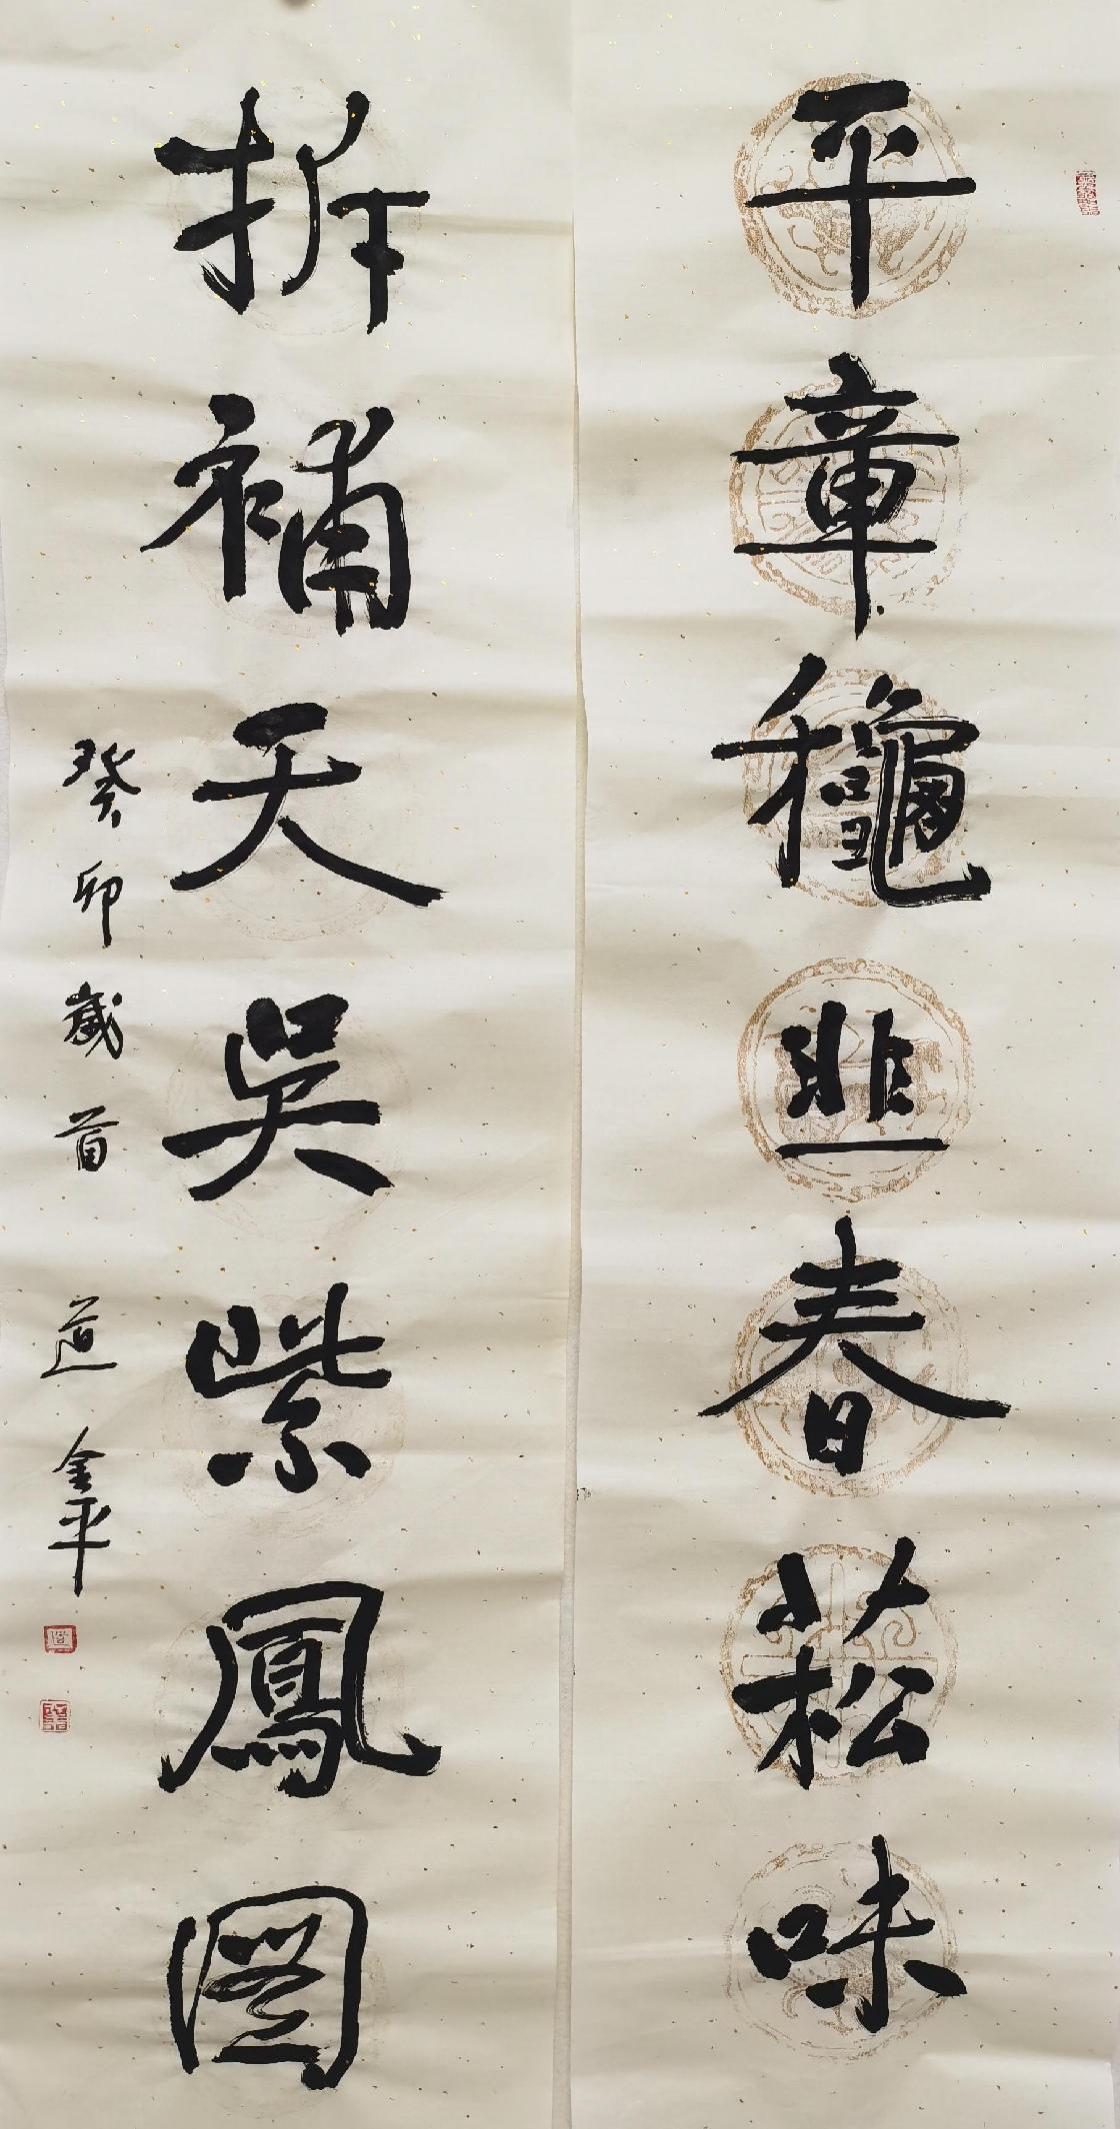 平章穐韭春菘味
拆補天吳紫鳳圖
癸卯歲首 道金平